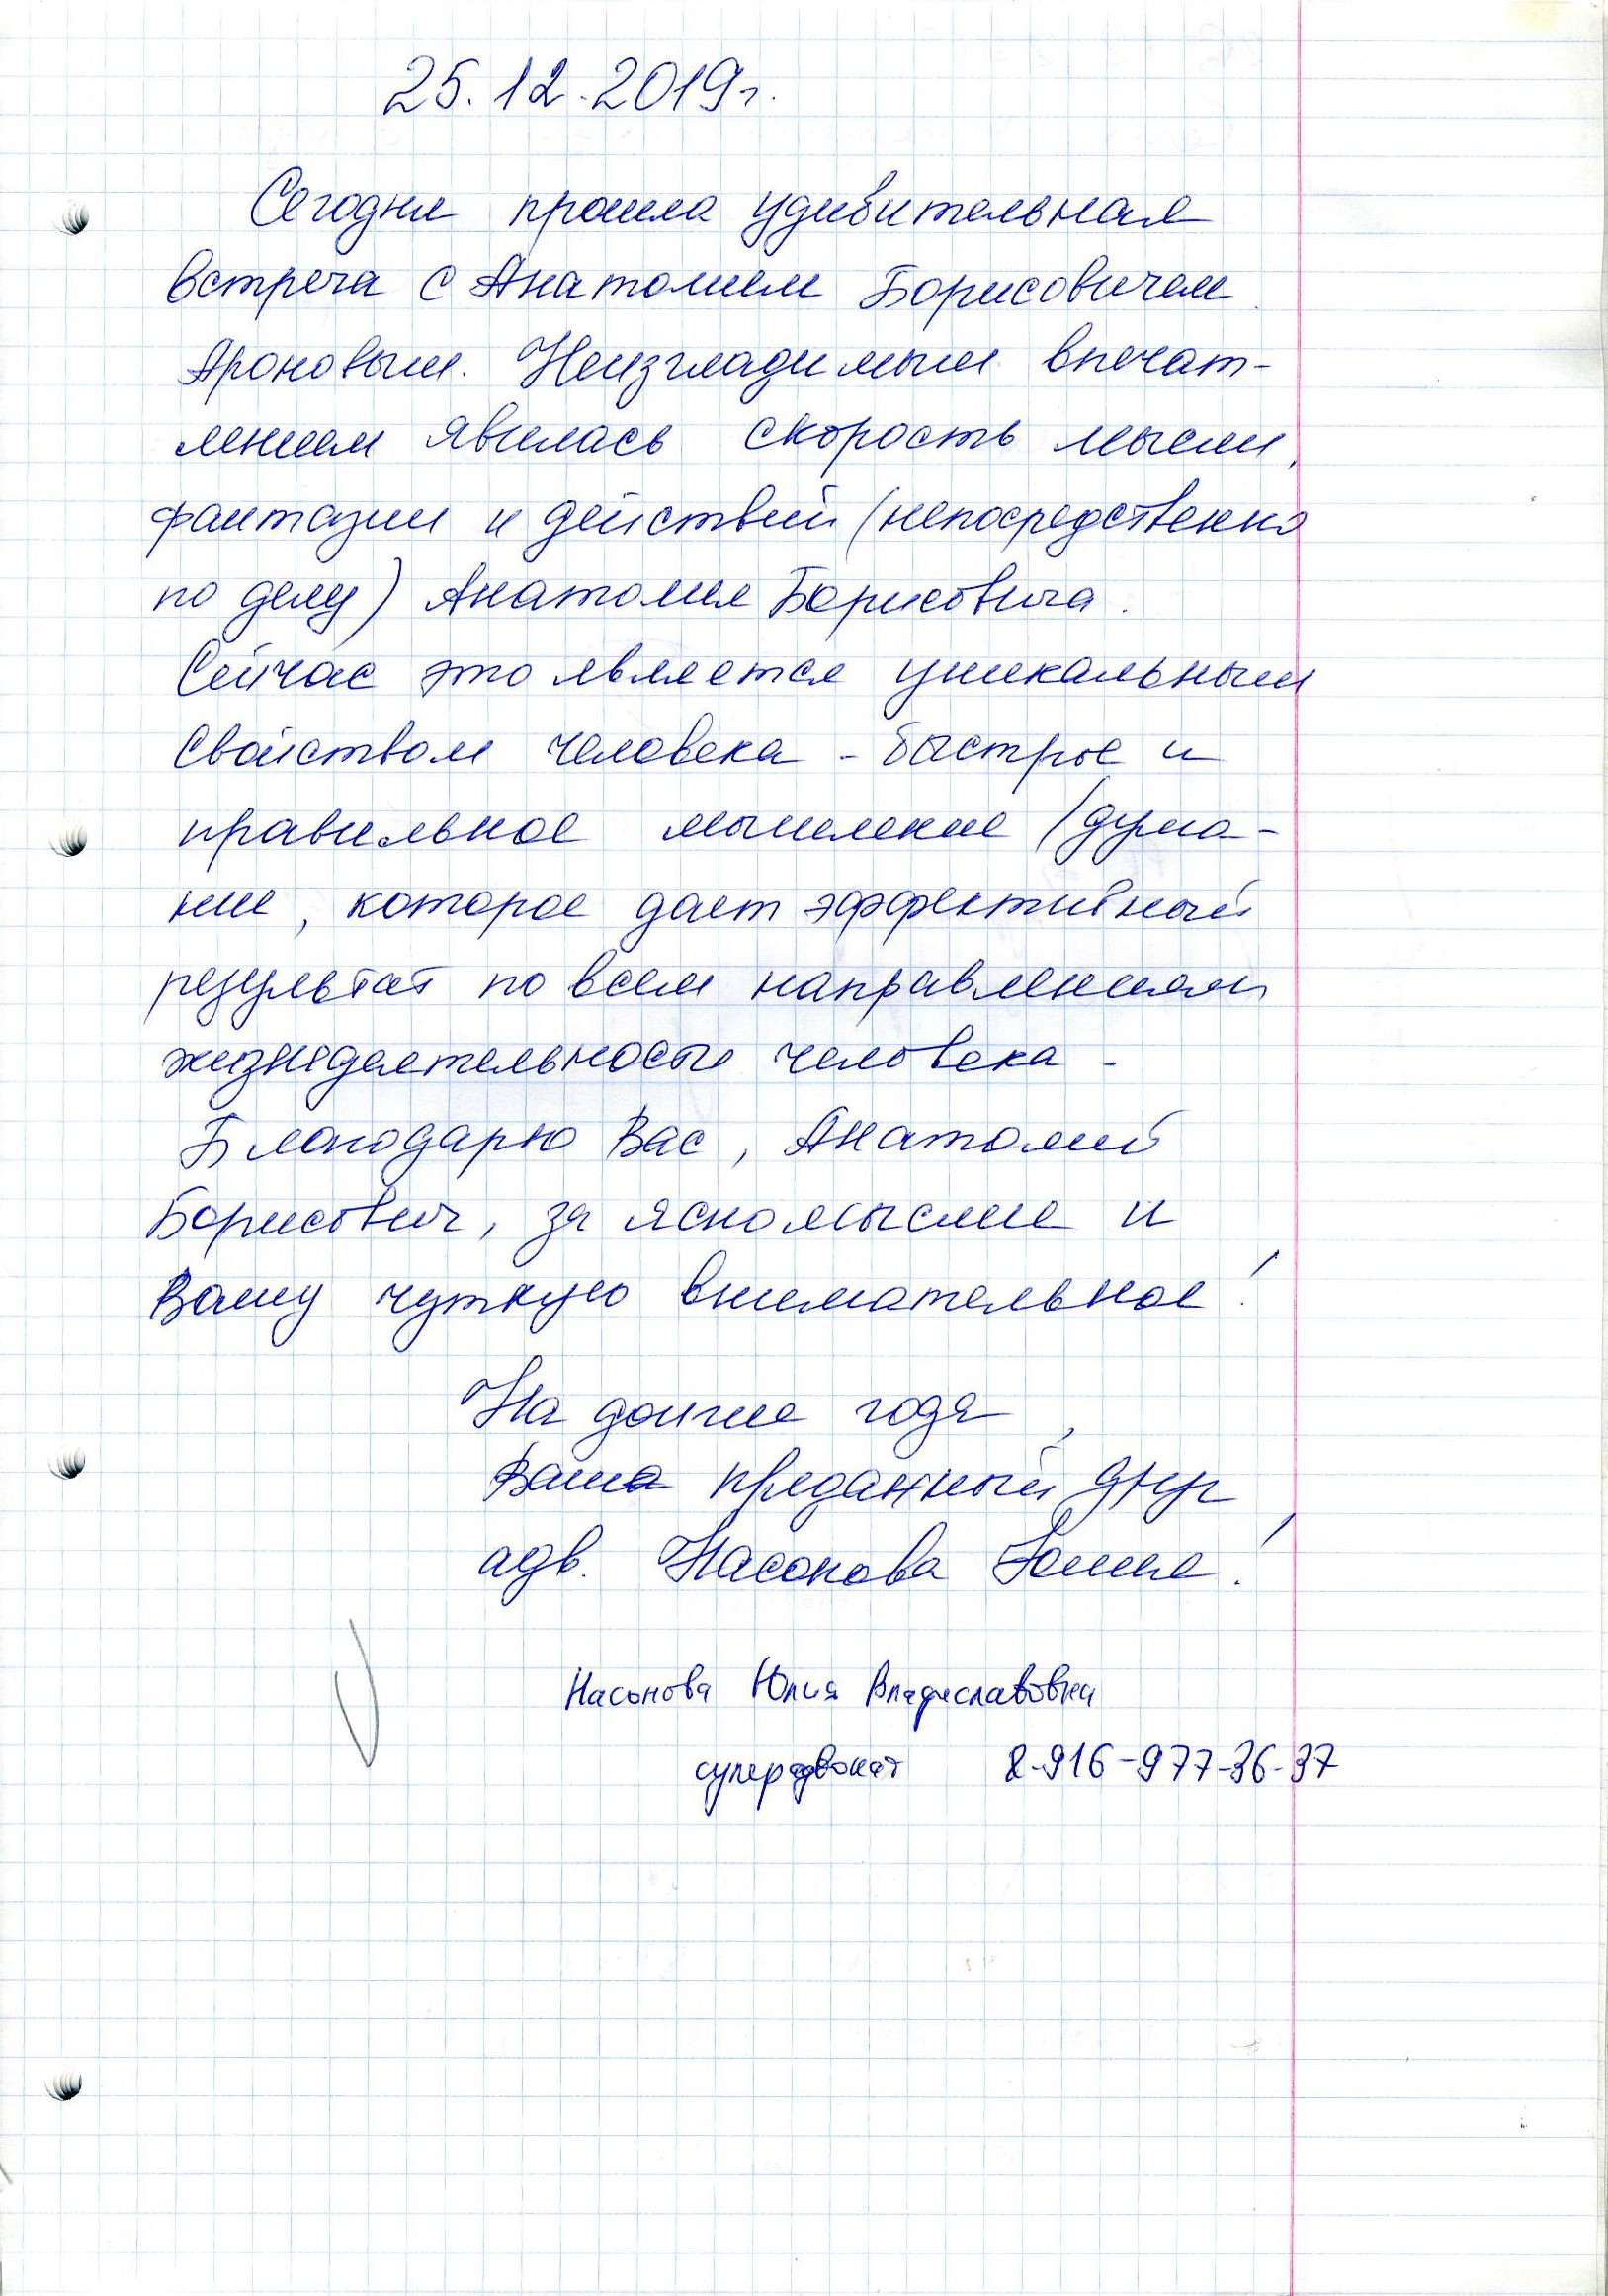 25.12.2019г.
Сегодня прошла удивительная
встреча с Анатолием Борисовичем
Ароновым. Неизгладимым впечат-
лением явилась скорость мысли,
фантазии и действий (непосредственно
по делу) Анатолия Борисовича.
Сейчас это является уникальным
свойством человека - быстрое и
правильное мышление (дума-
ние, которое дает эффективный
результат по всем направлениям
жизнедеятельности человека -
Благодарю Вас, Анатолий
Борисович, за ясномыслие и
Вашу чуткую внимательное!
На долгие года,
Ваша преданный друг
адв. Насонова Юлия!
Насонова Юлия Владиславовна
суперадвокат 8-916-977-36-37